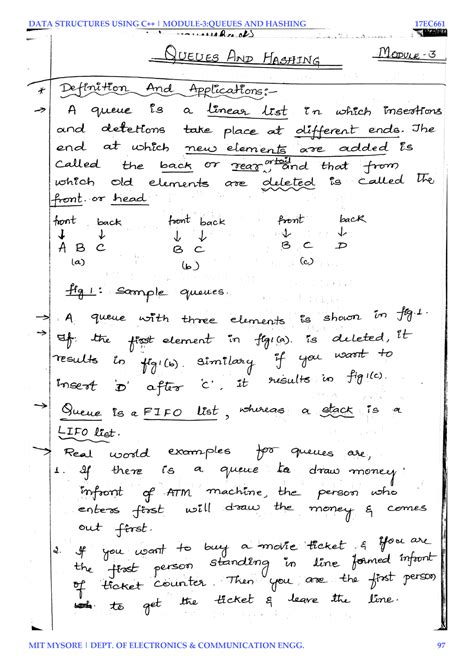 DATA STRUCTURES USING C++ | MODULE-3:QUEUES AND HASHING 17EC661
QUEUES AND HASHING MODULE-3
* Definition And Applications:-
→ A queue is a linear list in which insertions
and deletions take place at different ends. The
end at which new elements are added is
called the back or rear or tail, and that from
which old elements are deleted is called the
front or head
front back front back front back
↓ ↓ ↓ ↓ ↓ ↓
A B C B C B C D
(a) (b) (c)
fig 1: Sample queues.
→ A queue with three elements is shown in fig 1.
→ If the first element in fig1(a). is deleted, it
results in fig1(b). Similary if you want to
insert 'D' after 'C', it results in fig1(c).
→ Queue is a FIFO list, whereas a stack is a
LIFO list.
→ Real world examples for queues are,
1. If there is a queue to draw money
infront of ATM machine, the person who
enters first will draw the money & comes
out first.
2. If you want to buy a movie ticket & if you are
the first person standing in line formed infront
of ticket counter. Then you are the first person
to get the ticket & leave the line.
MIT MYSORE | DEPT. OF ELECTRONICS & COMMUNICATION ENGG. 97